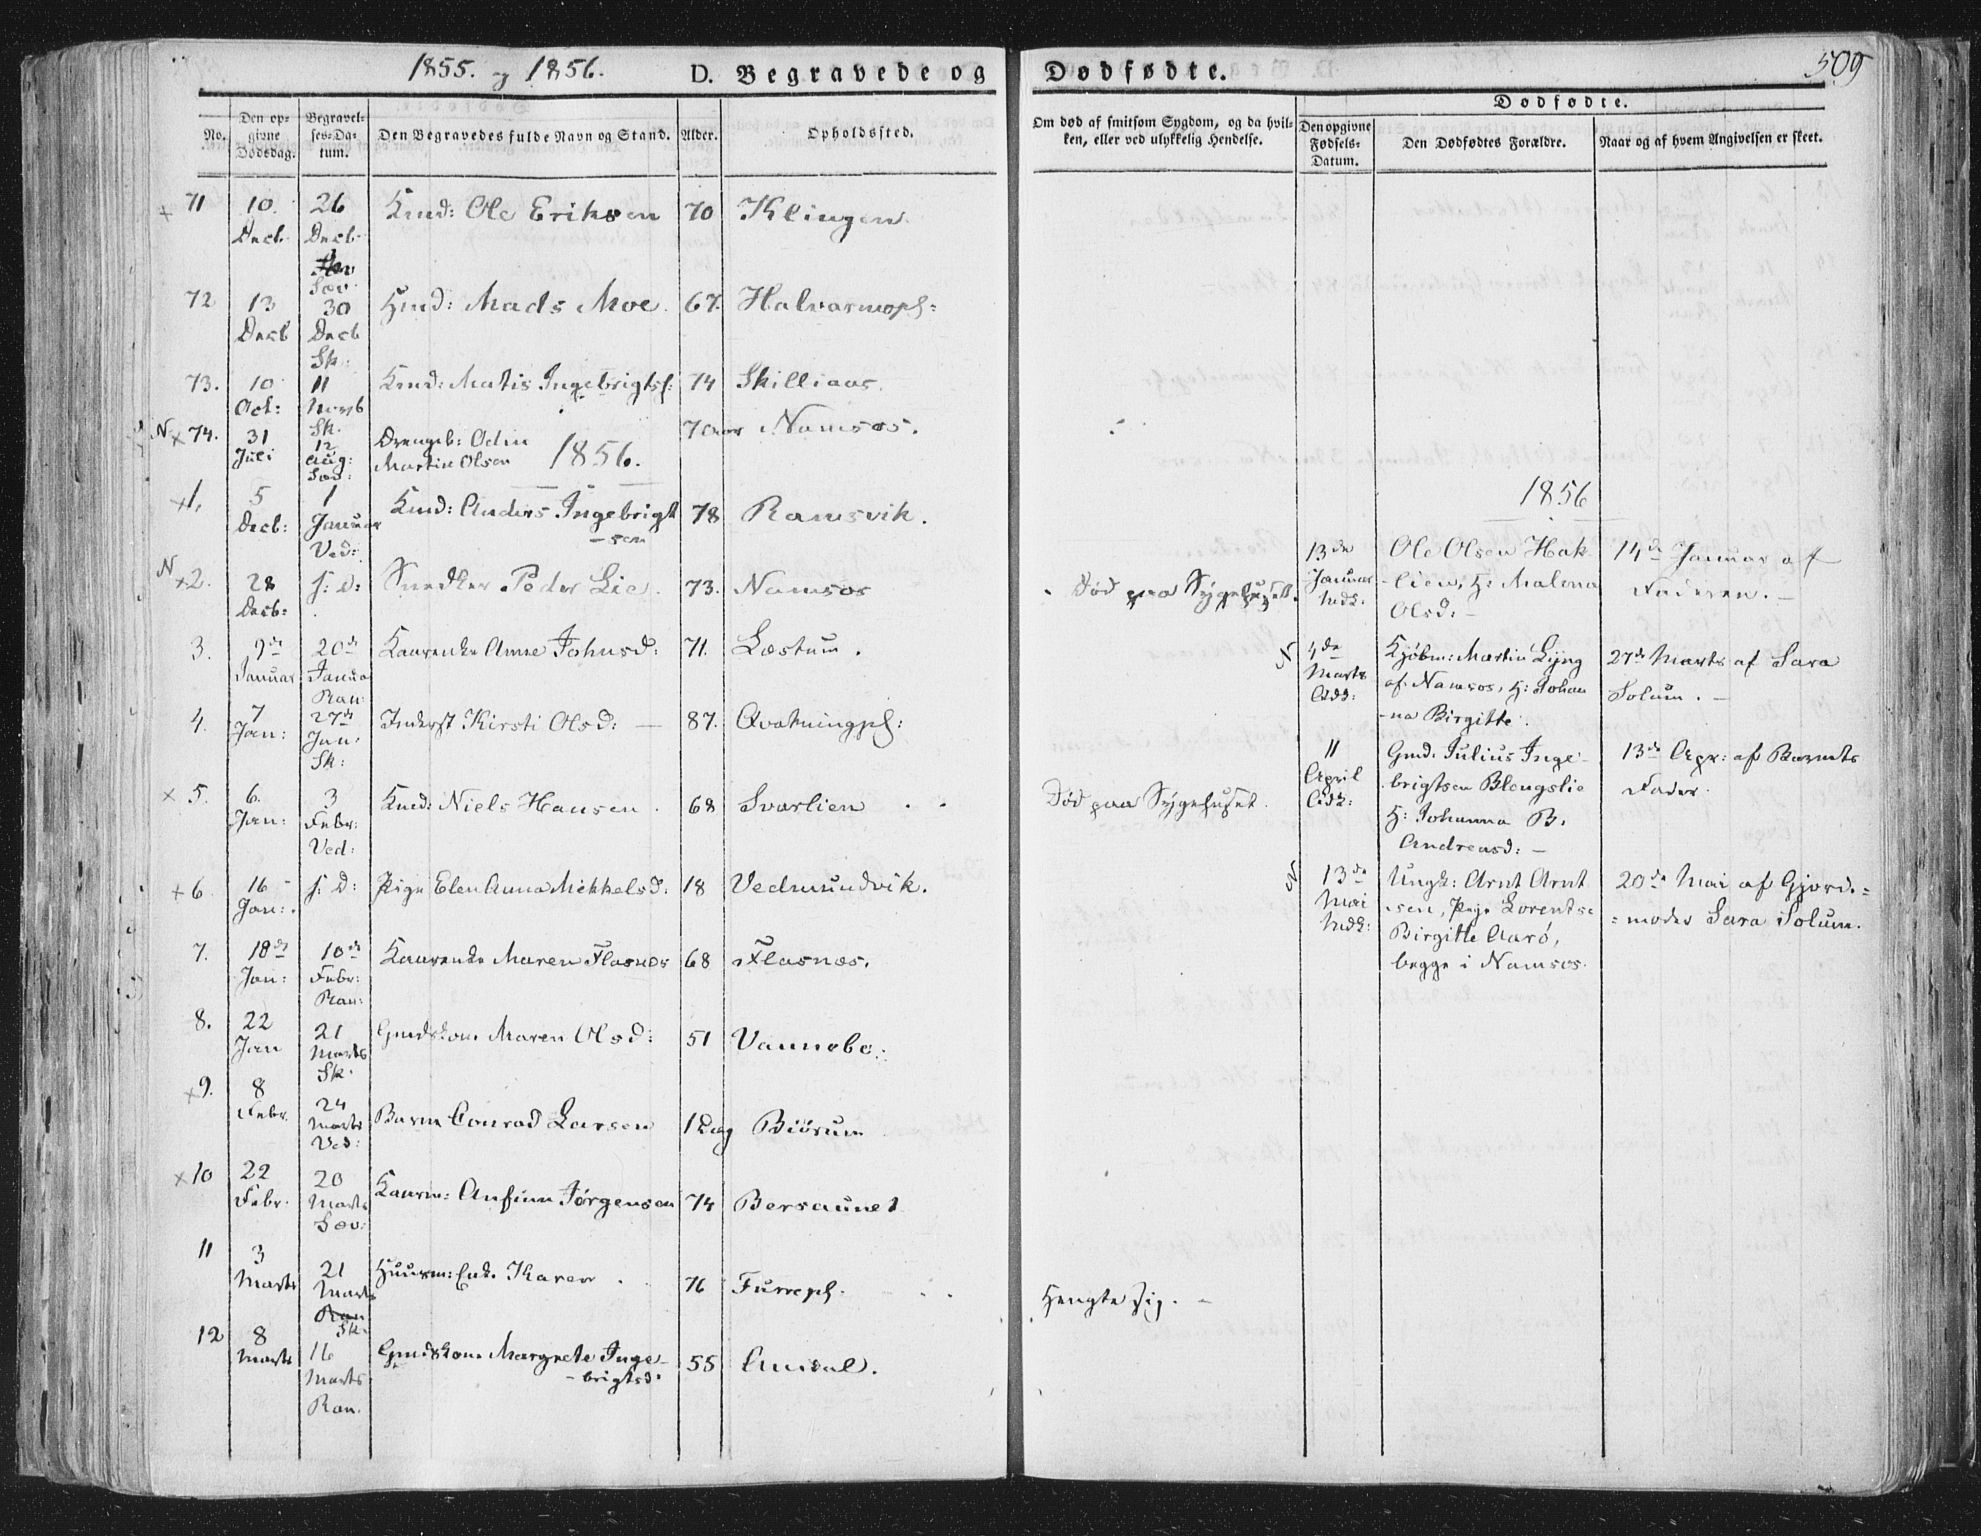 1855. og 1856.
D. Begravede og
Dødfødte.
509
No.
Den op-
givne
Dødsdag.
Begravel-
ses-Da-
tum.
Den Begravedes fulde Navn og Stand.
Alder.
Opholdssted.
Om død af smitsom Sygdom, og da hvil-
ken, eller ved ulykkelig Hendelse.
Dødfødte.
Den opgivne
Fødsels-
Datum.
Den Dødfødtes Forældre.
Naar og af hvem Angivelsen er skeet.
71 10. Decb. 26 Decb. Sæv. Kmd: Ole Eriksen 70 Klingen.
72 13 Decb 30 Decb Sk: Hmd: Mads Moe. 67. Halvarmopl:
73. 10 Oct: 11 Novb Sk. Kmd: Matis Ingebrigts: 74 Skilliaas.
N x 74. 31 Juli 12 Aug: Sæv: Drengeb: Odin
Martin Olsen 7 Aar Namsos.
1856.
x 1. 5 Decb: 1 Januar Ved: Kmd: Anders Ingebrigt
-sen 78 Ramsvik.
N x 2. 28 Decb: s: d: Snedker Peder Lie. 73. Namsos Død paa Sygehuset.
3. 9de Januar 20de Janua Ran: Kaarenke Anne Johnsd: 71. Læstum.
4. 7 Jan: 27de Jan: Sk: Inderst Kirsti Olsd: — 87. Qvatningpl:
x 5. 6. Jan: 3 Febr: Ved: Kmd: Niels Hansen. 68 Svarlien Død paa Sygehuset.
x 6. 16 Jan: s: d: Pige Elen Anna Mikkelsd. 18 Vedmundvik.
7. 18de Jan: 10de Febr: Ran: Kaarenke Maren Flasnes 68 Flasnes.
8. 22 Jan 21 Marts Sk. Gmdskone Maren Olsd: 51 Vannebo.
x 9. 8 Febr. 24 Marts Ved: Barn Conrad Larsen 1 Dag Biörum
x 10 22 Febr. 20 Marts Sæv: Kaarm: Anfinn Jörgensen 74 Bersaunet
11 3 Marts 21 Marts Sk: Huusm: Enk. Karen. 76 Furrepl. Hengte sig. —
12 8 Marts 16 Marts Ran. Gmdskone Margrete Inge-
-brigtsd: 55
1856
13de Januar Ole Olsen Hak
-lien, H: Malena
Olsd: — 14de Januar af
Faderen. —
N 4de Marts Kjöbm: Martin Lyng
af Namsos, H: Johan
-na Birgitte. 27de Marts af Sara
Solum. —
11 April Gmd. Julius Inge-
brigtsen Blengslie
H: Johanna B.
Andreasd: — 13de Apr: af Barnets
Fader.
N 13de Mai Ungk: Arnt Arnt
-sen, Pige Lorentse
Birgitte Aarö,
begge i Namsos. 20de Mai af Gjorde=
=moder Sara Solum.